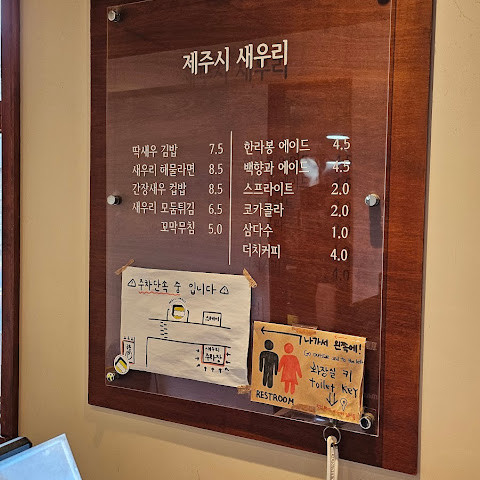 제주시 새우리
딱새우 김밥 7.5
새우리 해물라면 8.5
간장새우 컵밥 8.5
새우리 모둠튀김 6.5
꼬막무침 5.0
한라봉 에이드 4.5
백향과 에이드 4.5
스프라이트 2.0
코카콜라 2.0
삼다수 1.0
더치커피 4.0
⚠주차단속 중 입니다⚠
나가서 왼쪽에!
화장실 키
toilet key
RESTROOM